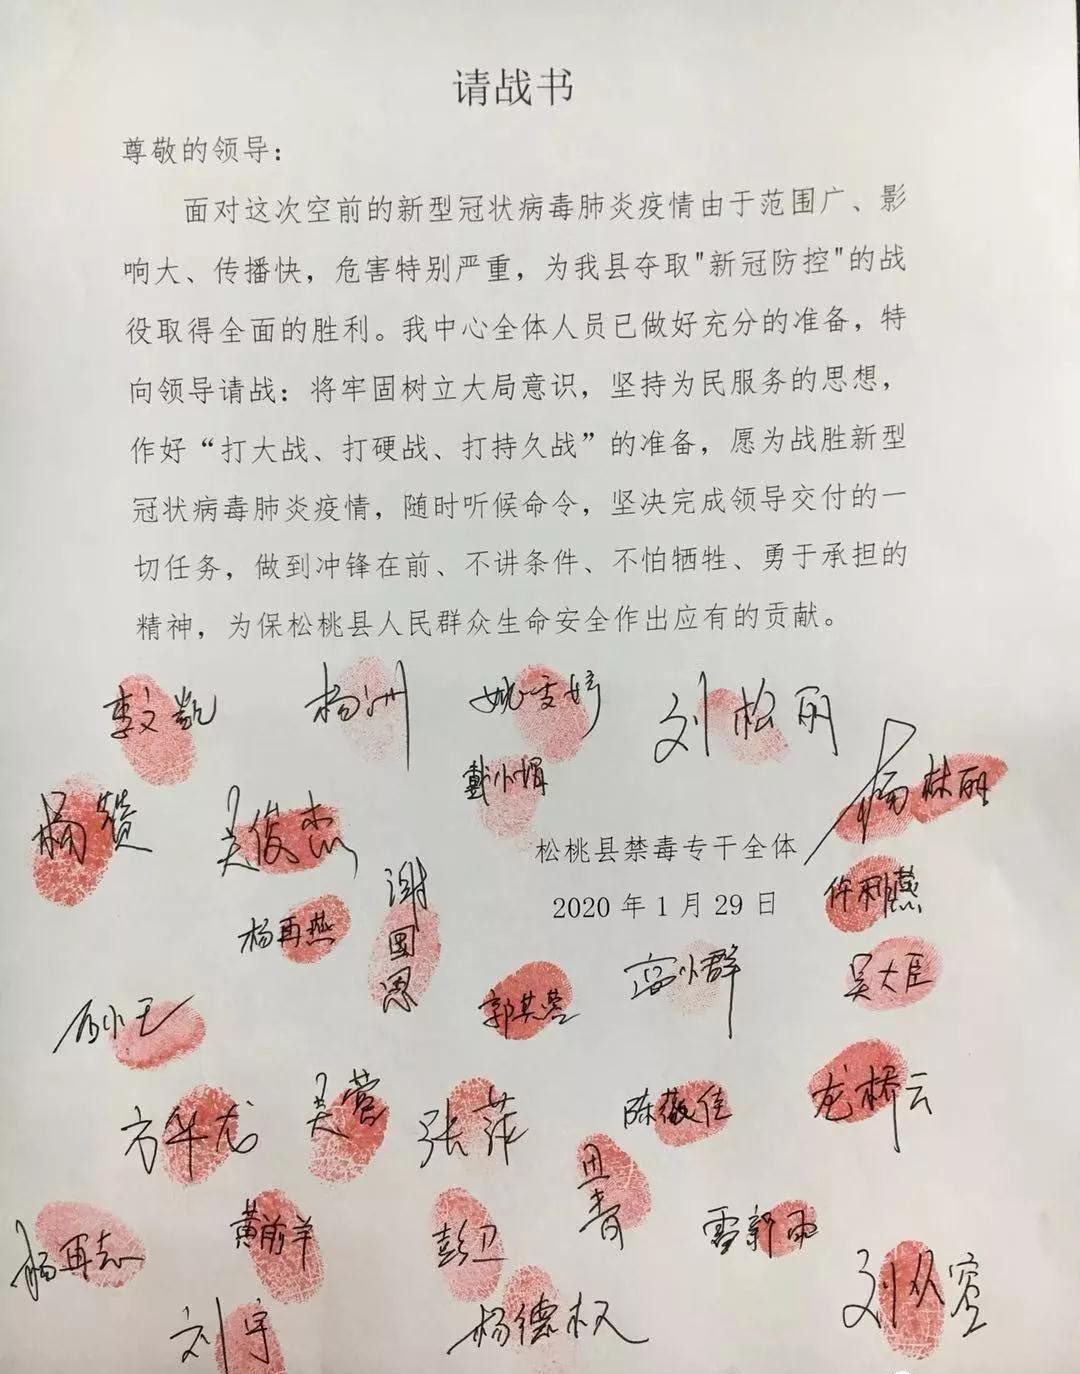 请战书
尊敬的领导：
面对这次空前的新型冠状病毒肺炎疫情由于范围广、影
响大、传播快，危害特别严重，为我县夺取"新冠防控"的战
役取得全面的胜利。我中心全体人员已做好充分的准备，特
向领导请战：将牢固树立大局意识，坚持为民服务的思想，
作好“打大战、打硬战、打持久战”的准备，愿为战胜新型
冠状病毒肺炎疫情，随时听候命令，坚决完成领导交付的一
切任务，做到冲锋在前、不讲条件、不怕牺牲、勇于承担的
精神，为保松桃县人民群众生命安全作出应有的贡献。
杨洲
姚雪婷
刘松丽
戴小娟
杨林丽
杨赞
吴俊杰
松桃县禁毒专干全体
2020年1月29日
谢国恩
许利燕
杨再燕
吴大臣
郭其莹
方华龙
吴莹
张萍
陈敬佳
龙桥云
田青
杨再志
黄前羊
彭卫
雷新雨
刘从容
刘宇
杨德权